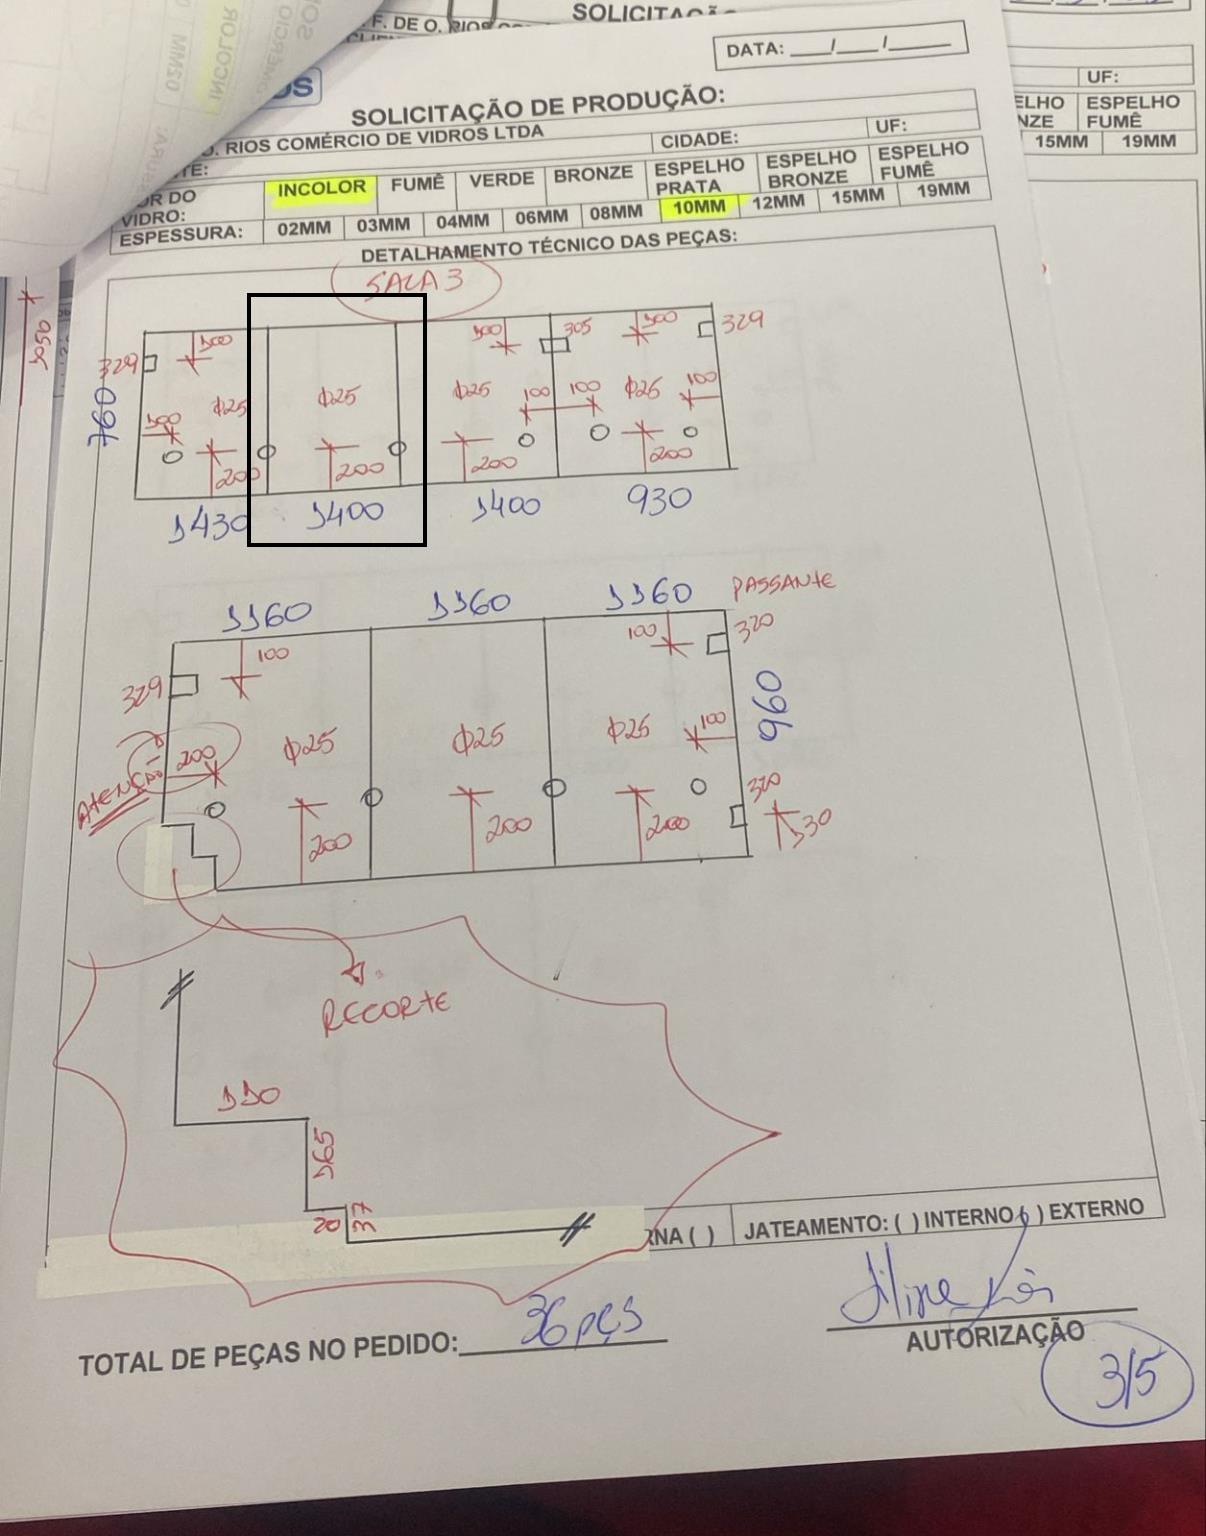 SOLICITAÇÃO
F. DE O. RIOS
02MM
INCOLOR
DATA: ___/___/_____
OS
SOLICITAÇÃO DE PRODUÇÃO:
O. RIOS COMÉRCIO DE VIDROS LTDA
CIDADE:
UF:
TE:
OR DO VIDRO:
INCOLOR FUMÊ VERDE BRONZE ESPELHO PRATA ESPELHO BRONZE ESPELHO FUMÊ
ESPESSURA: 02MM 03MM 04MM 06MM 08MM 10MM 12MM 15MM 19MM
UF:
ELHO NZE ESPELHO FUMÊ
15MM 19MM
DETALHAMENTO TÉCNICO DAS PEÇAS:
SALA 3
1050
329 100 100 305 100 329
760 100 φ25 φ25 φ25 100 100 φ25 100
200 200 200 200
1430 1400 1400 930
1160 1160 1160 PASSANTE
100 100 320
329
ATENÇÃO 200 φ25 φ25 φ25 100 990
320
200 200 200 130
RECORTE
110
165
20 37
RNA ( ) JATEAMENTO: ( ) INTERNO ( ) EXTERNO
TOTAL DE PEÇAS NO PEDIDO: 36 pçs
Aline Rios
AUTORIZAÇÃO
3/5